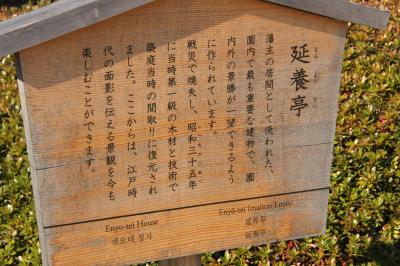 延養亭
えん よう てい
藩主の居間として使われた、
園内で最も重要な建物で、園
内外の景勝が一望できるよう
に作られています。
戦災で焼失し、昭和三十五年
に当時第一級の木材と技術で
築庭当時の間取りに復元され
ました。ここからは、江戸時
代の面影を伝える景観を今も
楽しむことができます。
Enyo-tei House
엔요테 정자
Enyō-tei (maison Enyō)
延养亭
延養亭